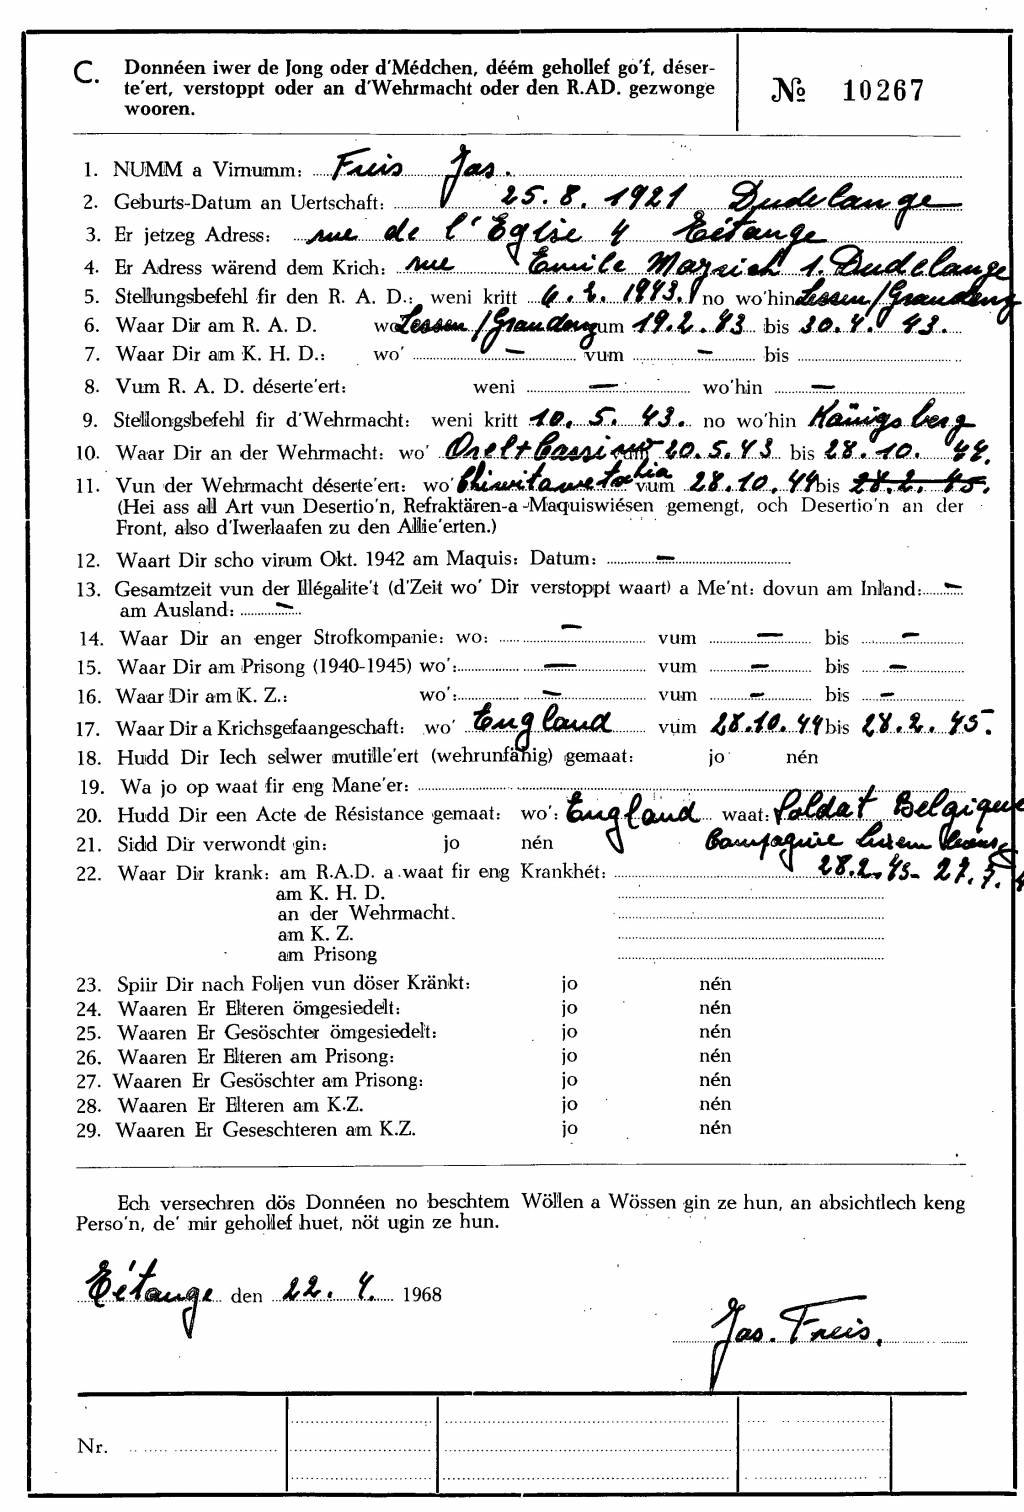 C. Donnéen iwer de Jong oder d'Médchen, déém gehollef go'f, déser-
te'ert, verstoppt oder an d'Wehrmacht oder den R.AD. gezwonge
wooren.
№ 10267
1. NUMM a Virnumm: Freis Jas.
2. Geburts-Datum an Uertschaft: 25.8.1921 Dudelange
3. Er jetzeg Adress: rue de l'Eglise 4 Tétange
4. Er Adress wärend dem Krich: rue Emile 1. Dudelange
5. Stellungsbefehl fir den R. A. D.: weni kritt 4.2.1943. no wo'hin Lessen/Graudenz
6. Waar Dir am R. A. D. wo Lessen/Graudenz vum 19.2.43 bis 30.4.43.
7. Waar Dir am K. H. D.: wo' — vum — bis
8. Vum R. A. D. déserte'ert: weni — wo'hin —
9. Stellongsbefehl fir d'Wehrmacht: weni kritt 10.5.43. no wo'hin Königsberg
10. Waar Dir an der Wehrmacht: wo' vum 20.5.43 bis 28.10.44.
11. Vun der Wehrmacht déserte'ert: wo' vum 28.10.44 bis 28.2.45.
(Hei ass all Art vun Desertio'n, Refraktären-a-Maquiswiésen gemengt, och Desertio'n an der
Front, also d'Iwerlaafen zu den Allie'erten.)
12. Waart Dir scho virum Okt. 1942 am Maquis: Datum: —
13. Gesamtzeit vun der Illégalite't (d'Zeit wo' Dir verstoppt waart) a Me'nt: dovun am Inland: —
am Ausland: —
14. Waar Dir an enger Strofkompanie: wo: — vum — bis —
15. Waar Dir am Prisong (1940-1945) wo': — vum — bis —
16. Waar Dir am K. Z.: wo': — vum — bis —
17. Waar Dir a Krichsgefaangeschaft: wo' England vum 28.10.44 bis 28.2.45.
18. Hudd Dir Iech selwer mutille'ert (wehrunfähig) gemaat: jo nén
19. Wa jo op waat fir eng Mane'er:
20. Hudd Dir een Acte de Résistance gemaat: wo': England waat: Soldat Belgique
21. Sidd Dir verwondt gin: jo nén Campagnie
22. Waar Dir krank: am R.A.D. a waat fir eng Krankhét: 28.2.45-27.7.
am K. H. D.
an der Wehrmacht.
am K. Z.
am Prisong
23. Spiir Dir nach Foljen vun döser Kränkt: jo nén
24. Waaren Er Elteren ömgesiedelt: jo nén
25. Waaren Er Gesöschter ömgesiedelt: jo nén
26. Waaren Er Elteren am Prisong: jo nén
27. Waaren Er Gesöschter am Prisong: jo nén
28. Waaren Er Elteren am K.Z. jo nén
29. Waaren Er Geseschteren am K.Z. jo nén
Ech versechren dös Donnéen no beschtem Wöllen a Wössen gin ze hun, an absichtlech keng
Perso'n, de' mir gehollef huet, nöt ugin ze hun.
Tétange den 22.4. 1968
Jas. Freis.
Nr.